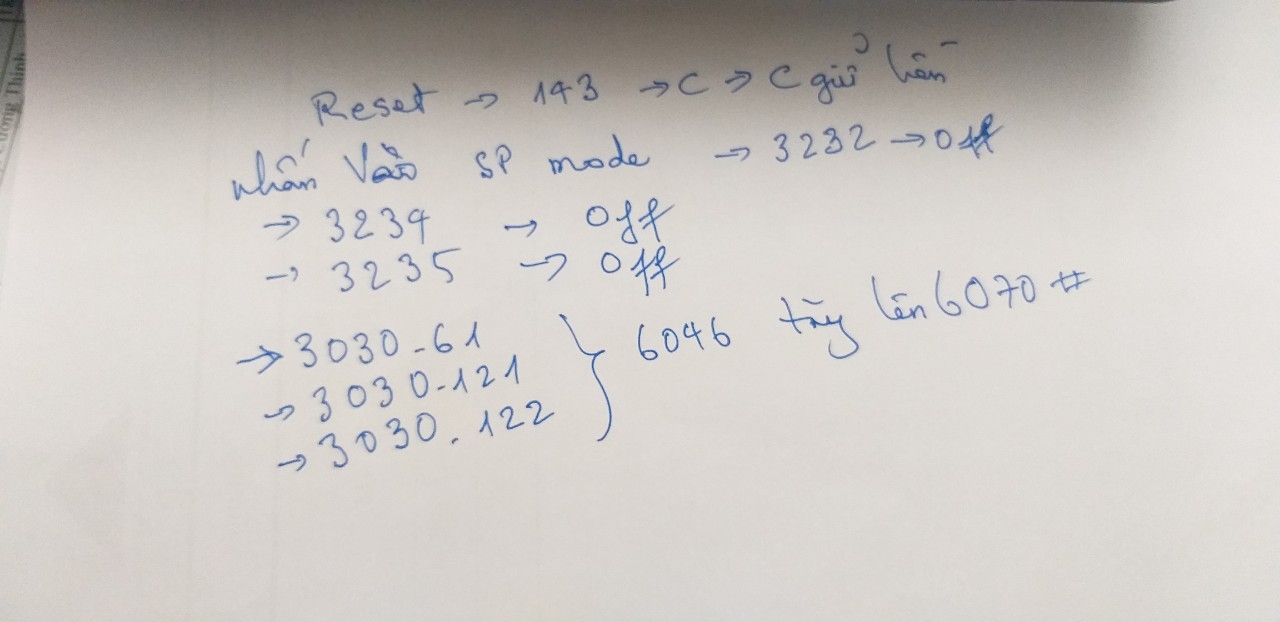 Reset → 143 → C → C giữ liên
nhấn Vào SP mode → 3232 → Off
→ 3234 → Off
→ 3235 → Off
→ 3030-61
→ 3030-121
→ 3030.122
} 6046 tăng lên 6070 #